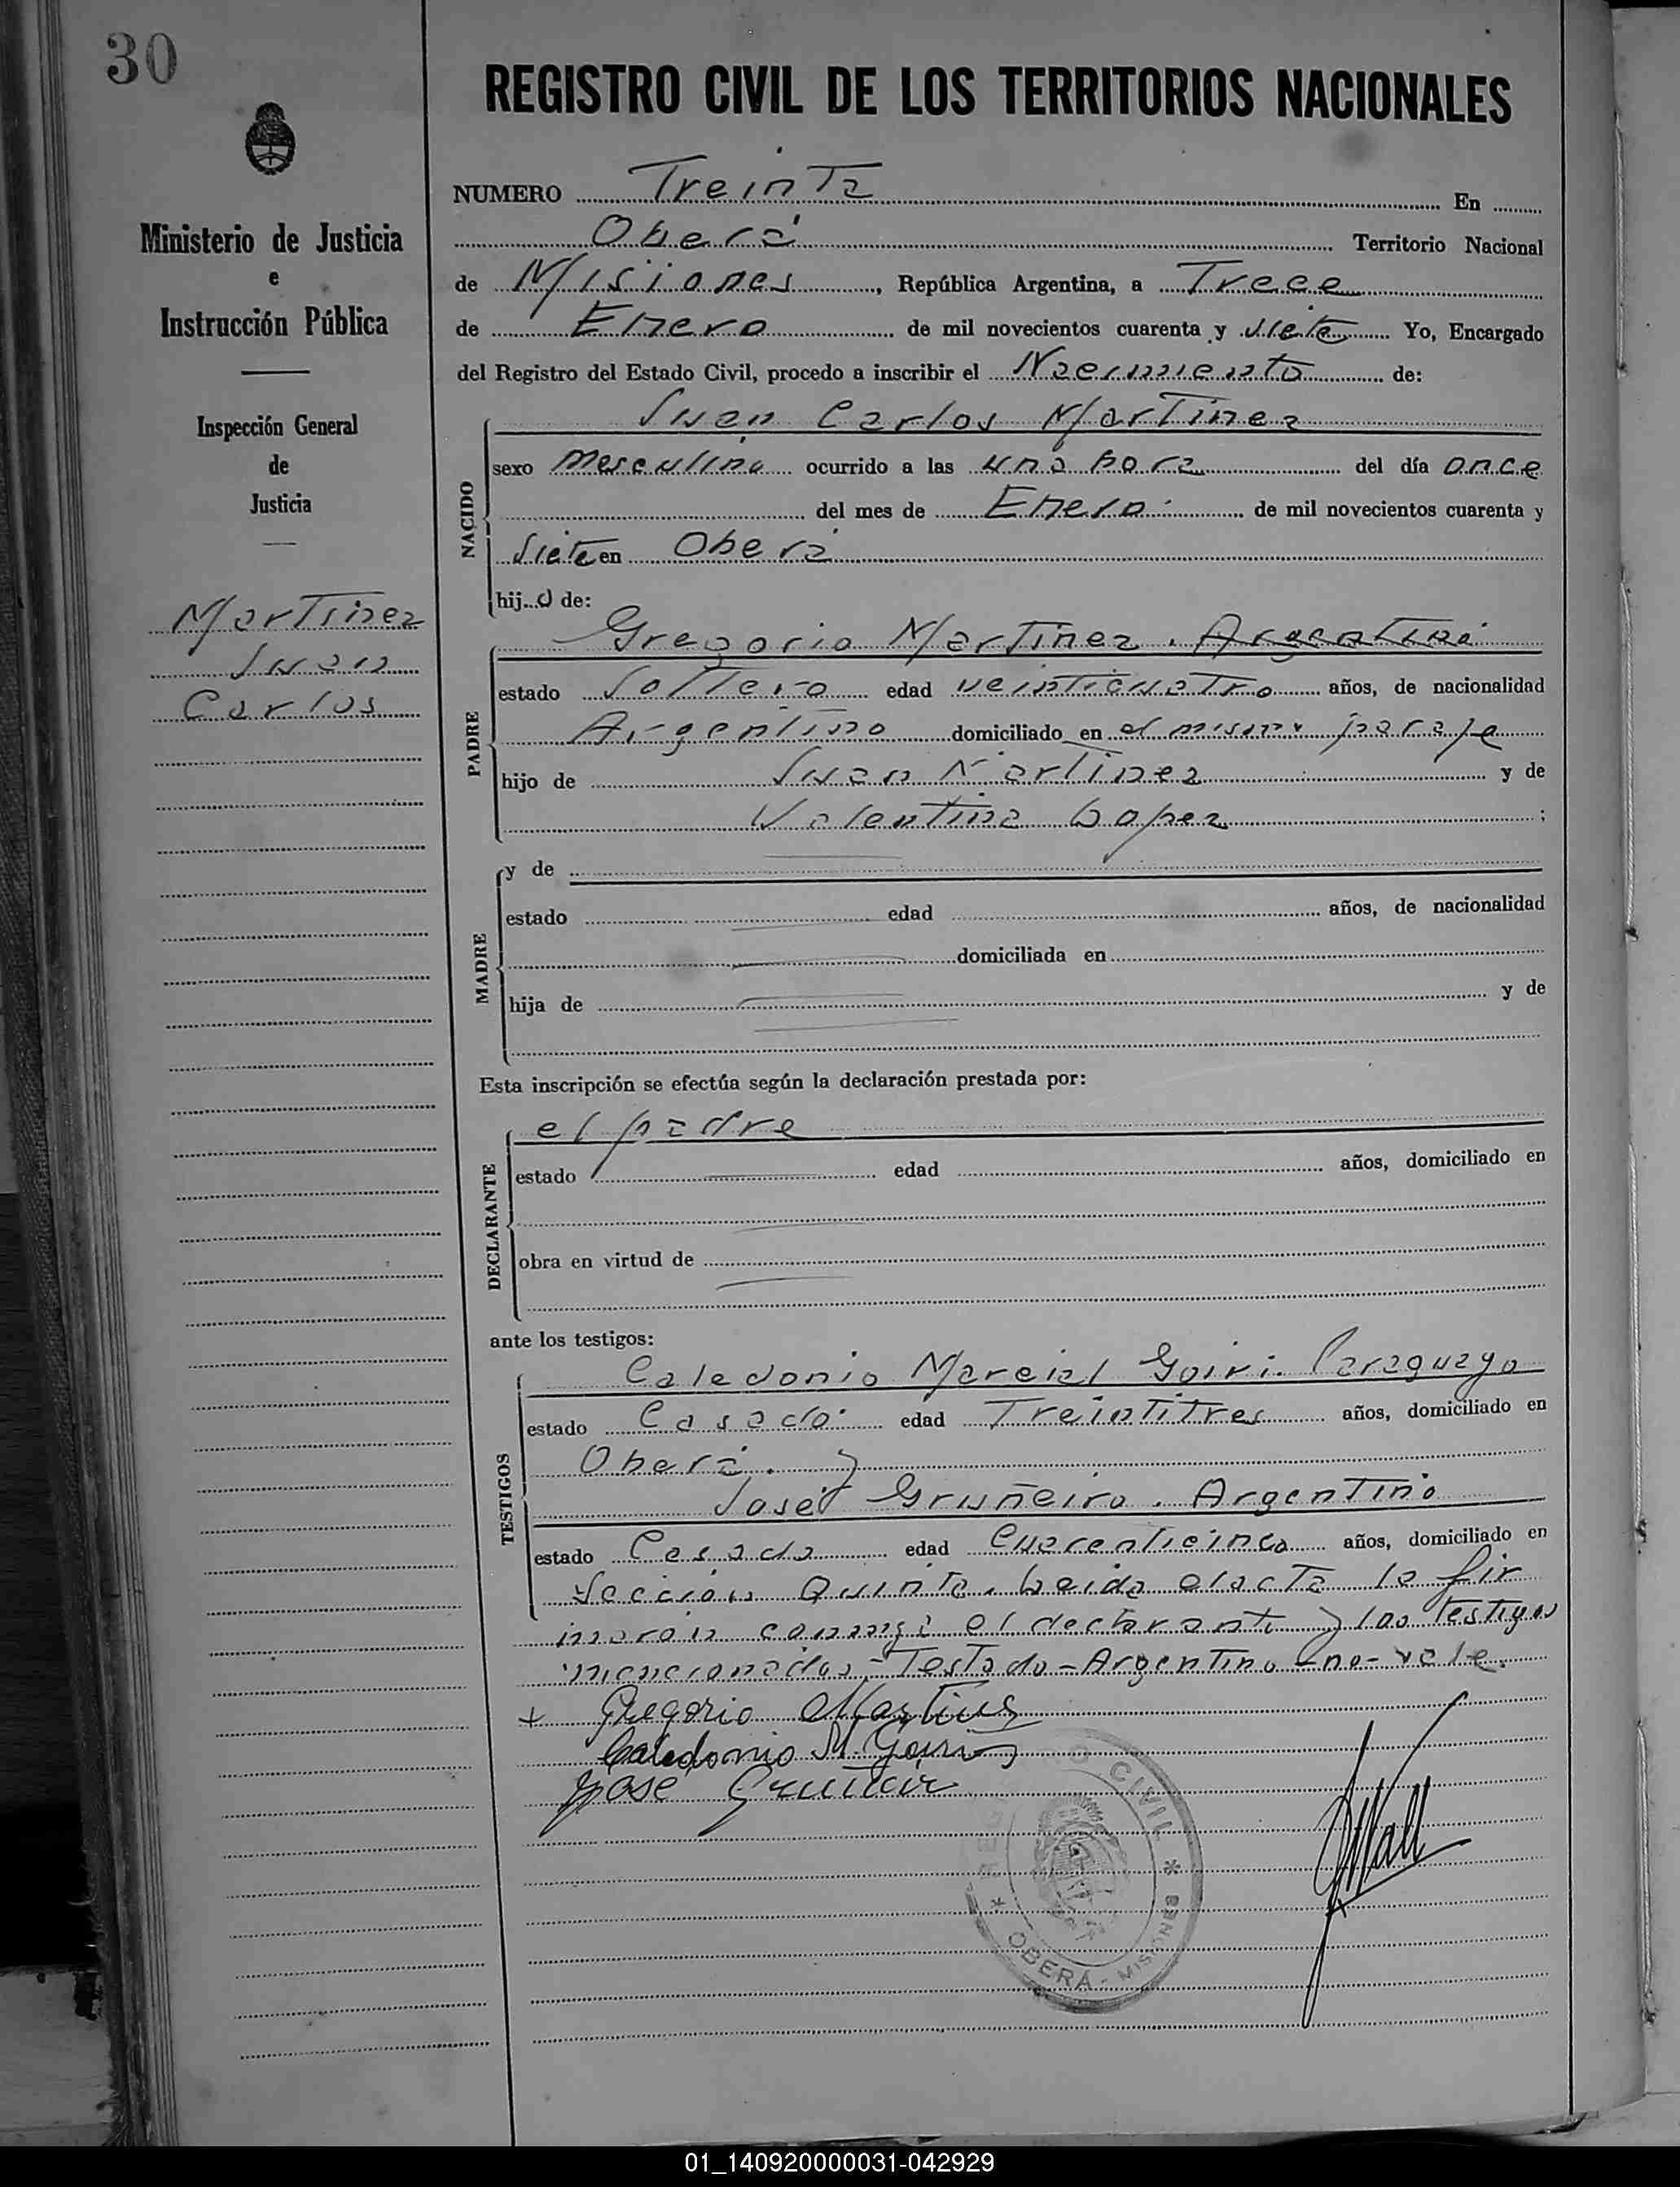 30
REGISTRO CIVIL DE LOS TERRITORIOS NACIONALES
Ministerio de Justicia
e
Instrucción Pública
Inspección General
de
Justicia
Martinez
Juan
Carlos
NUMERO Treinta En
Oberá Territorio Nacional
de Misiones, República Argentina, a Trece
de Enero de mil novecientos cuarenta y siete Yo, Encargado
del Registro del Estado Civil, procedo a inscribir el Nacimiento de:
NACIDO
Juan Carlos Martinez
sexo masculino ocurrido a las una hora del día once
del mes de Enero de mil novecientos cuarenta y
siete en Oberá
hijo de:
PADRE
Gregorio Martinez. Argentino
estado soltero edad veinticuatro años, de nacionalidad
Argentino domiciliado en el mismo paraje
hijo de Juan Martinez y de
Valentina Lopez ;
MADRE
y de
estado edad años, de nacionalidad
domiciliada en
hija de y de
Esta inscripción se efectúa según la declaración prestada por:
DECLARANTE
el padre
estado edad años, domiciliado en
obra en virtud de
ante los testigos:
TESTIGOS
Caledonio Marcial Goiri. Paraguayo
estado Casado edad Treintitres años, domiciliado en
Oberá. y
José Gruñeiro. Argentino
estado Casado edad Cuarenticinco años, domiciliado en
Sección Quinta. Leida el acta la fir
maron conmigo el declarante y los testigos
mencionados.- Testado - Argentino - no - vale.
+ Gregorio Martines
Caledonio M. Goiri
José
REGISTRO CIVIL * OBERÁ - MISIONES *
01_140920000031-042929